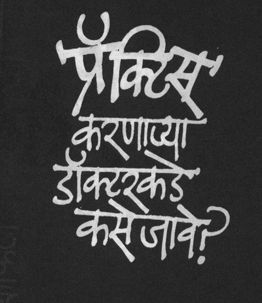 प्रॅक्टिस्
करणाऱ्या
डॉक्टरकडे
कसे जावे?